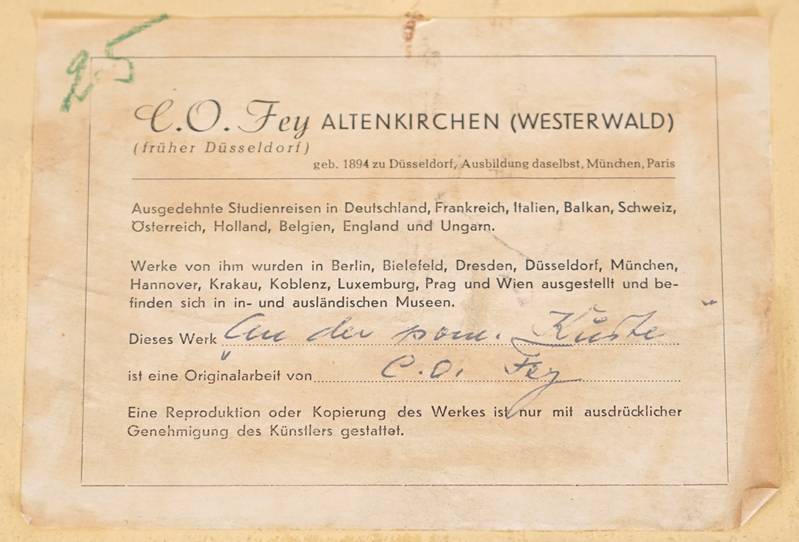 25
C.O. Fey ALTENKIRCHEN (WESTERWALD)
(früher Düsseldorf)
geb. 1894 zu Düsseldorf, Ausbildung daselbst, München, Paris
Ausgedehnte Studienreisen in Deutschland, Frankreich, Italien, Balkan, Schweiz,
Österreich, Holland, Belgien, England und Ungarn.
Werke von ihm wurden in Berlin, Bielefeld, Dresden, Düsseldorf, München,
Hannover, Krakau, Koblenz, Luxemburg, Prag und Wien ausgestellt und be-
finden sich in in- und ausländischen Museen.
Dieses Werk „An der pom. Küste“
ist eine Originalarbeit von C.O. Fey
Eine Reproduktion oder Kopierung des Werkes ist nur mit ausdrücklicher
Genehmigung des Künstlers gestattet.